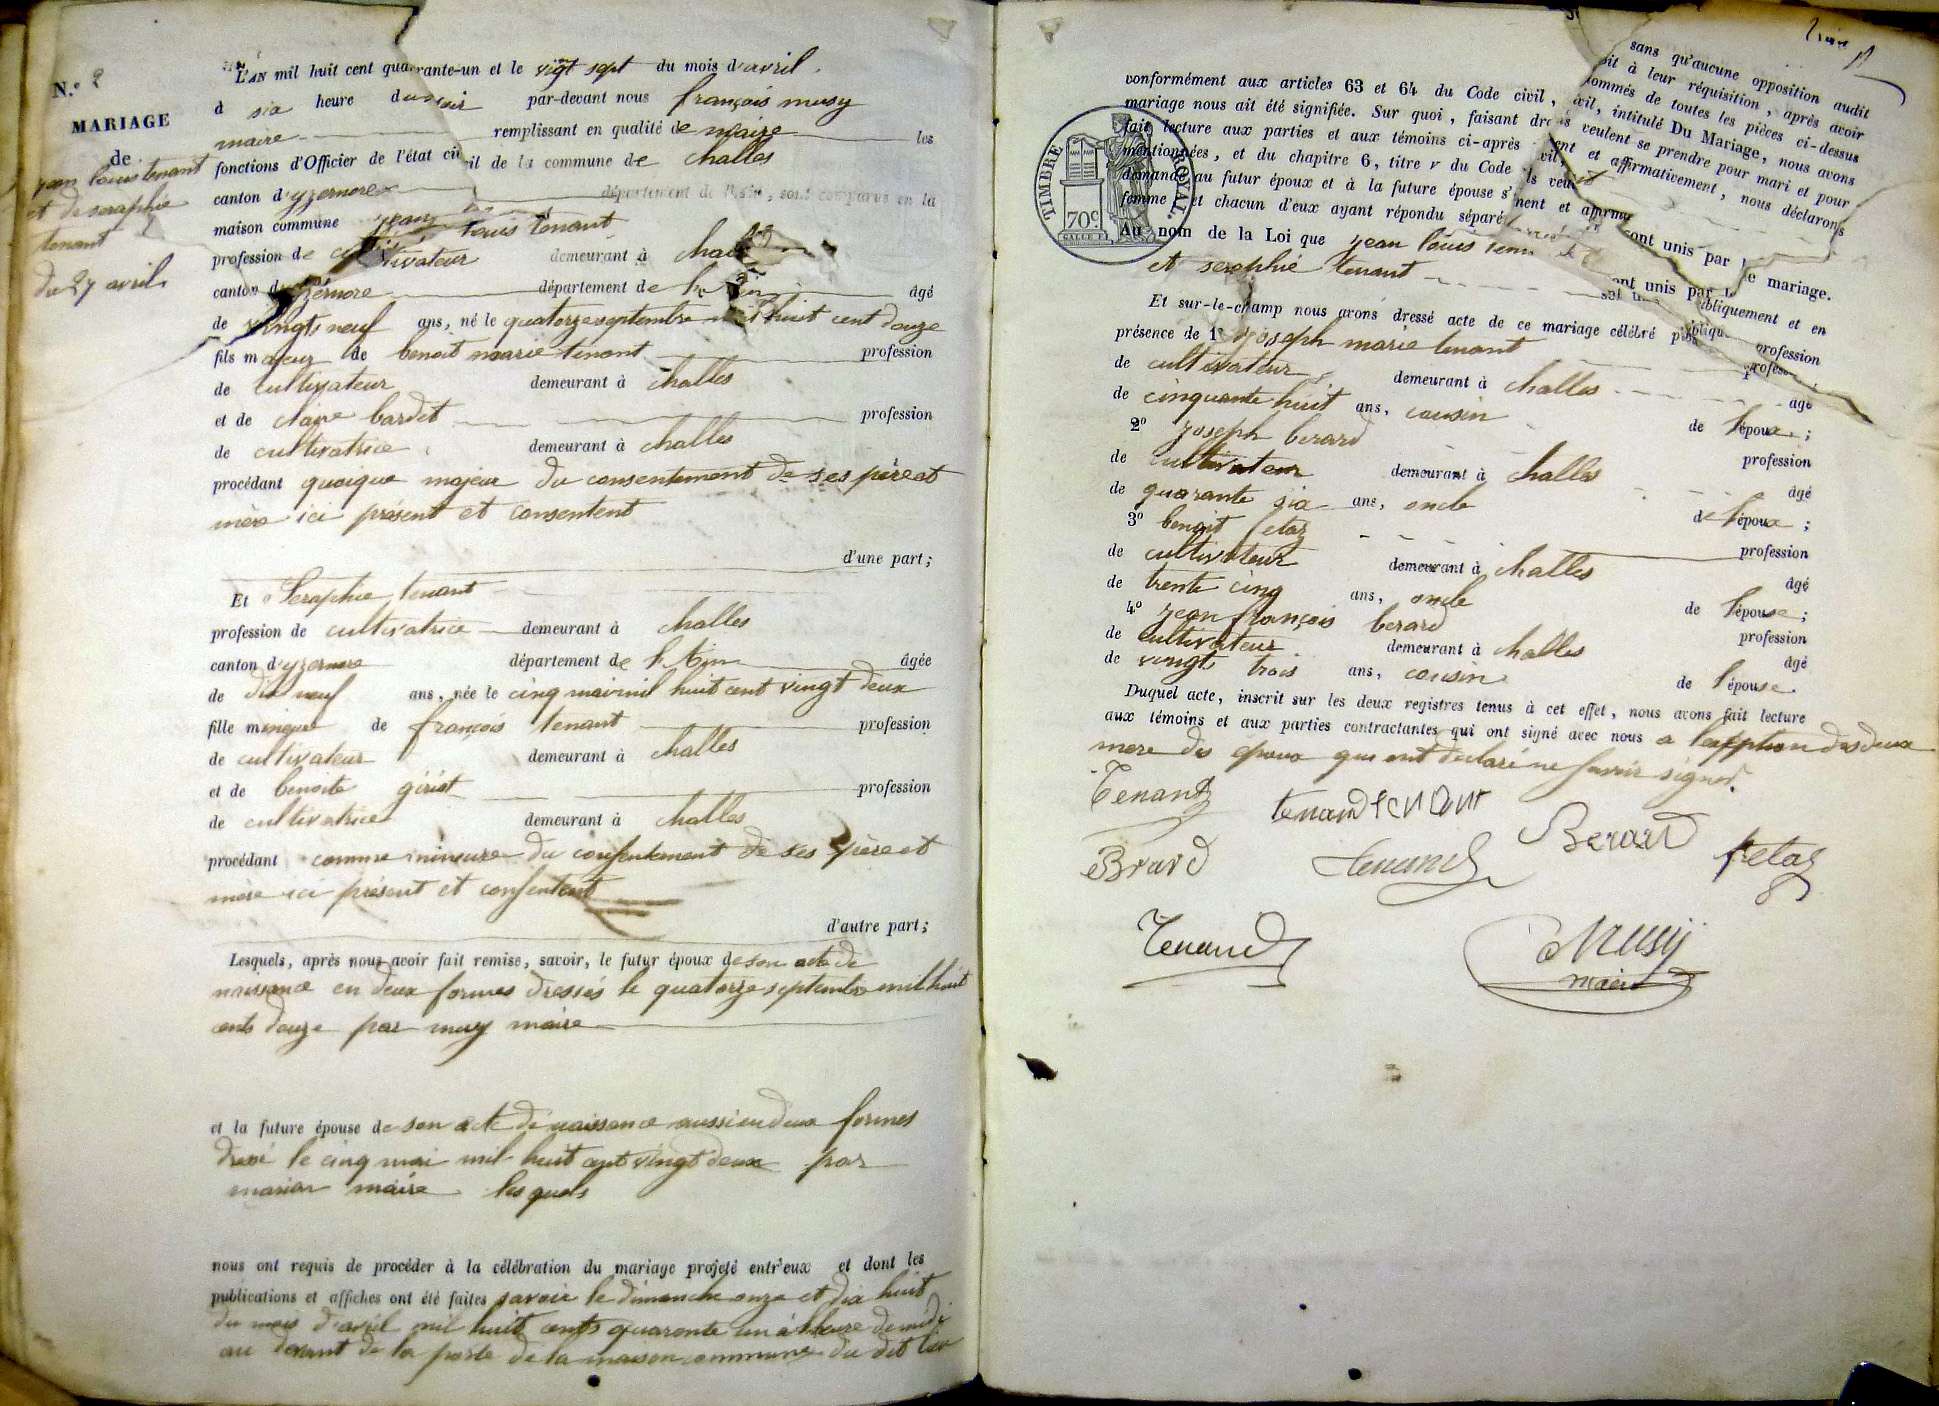 N.º 2
MARIAGE
de
jean louis tenant
et de seraphie
tenant
du 27 avril
L'AN mil huit cent quarante-un et le vigt sept du mois d'avril.
à six heure du soir par-devant nous françois musy
maire remplissant en qualité de maire les
fonctions d'Officier de l'état civil de la commune de challes
canton d'yzernore département de l'Ain, sont comparus en la
maison commune jean louis tenant
profession de cultivateur demeurant à challes
canton d'yzernore département de l'ain âgé
de vingts neuf ans, né le quatorze septembre mil huit cent douze
fils majeur de benoit marie tenant profession
de cultivateur demeurant à challes
et de claire bardet profession
de cultivatrice demeurant à challes
procédant quoique majeur du consentement de ses père et
mère ici présent et consentent
d'une part;
Et Seraphie tenant
profession de cultivatrice demeurant à challes
canton d'yzernore département de l'Ain âgée
de dix neuf ans, née le cinq mai mil huit cent vingt deux
fille mineure de françois tenant profession
de cultivateur demeurant à challes
et de benoite gériot profession
de cultivatrice demeurant à challes
procédant comme mineure du consentement de ses père et
mère ici présent et consentent
d'autre part;
Lesquels, après nous avoir fait remise, savoir, le futur époux de son acte de
naissance en deux formes dressés le quatorze septembre mil huit
cents douze par musy maire
et la future épouse de son acte de naissance aussi en deux formes
dressé le cinq mai mil huit cent vingt deux par
maire lesquels
nous ont requis de procéder à la célébration du mariage projeté entr'eux et dont les
publications et affiches ont été faites savoir le dimanche onze et dix huit
du mois d'avril mil huit cents quarante un à l'heure de midi
au devant de la porte de la maison commune du dit lieu
conformément aux articles 63 et 64 du Code civil, sans qu'aucune opposition audit
mariage nous ait été signifiée. Sur quoi, faisant droit à leur réquisition, après avoir
fait lecture aux parties et aux témoins ci-après nommés de toutes les pièces ci-dessus
mentionnées, et du chapitre 6, titre V du Code civil, intitulé Du Mariage, nous avons
demandé au futur époux et à la future épouse s'ils veulent se prendre pour mari et pour
femme, et chacun d'eux ayant répondu séparément et affirmativement, nous déclarons
Au nom de la Loi que jean louis tenant
et seraphie tenant sont unis par le mariage.
TIMBRE ROYAL
70c
Et sur-le-champ nous avons dressé acte de ce mariage célébré publiquement et en
présence de 1º joseph marie tenant profession
de cultivateur demeurant à challes âgé
de cinquante huit ans, cousin de l'époux;
2º joseph berard profession
de cultivateur demeurant à challes âgé
de quarante six ans, oncle de l'époux;
3º benoit fetaz profession
de cultivateur demeurant à challes âgé
de trente cinq ans, oncle de l'épouse;
4º jean françois berard profession
de cultivateur demeurant à challes âgé
de vingt trois ans, cousin de l'épouse
Duquel acte, inscrit sur les deux registres tenus à cet effet, nous avons fait lecture
aux témoins et aux parties contractantes qui ont signé avec nous a l'exeption des deux
mere des epoux qui ont declaré ne savoir signer.
Tenand tenand tenant
Brard Tenand Berard fetaz
Tenand Musy
maire